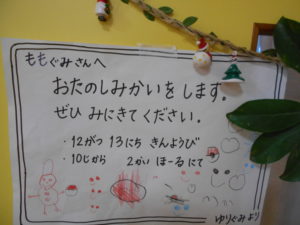 ももぐみさんへ
おたのしみかいを します。
ぜひ みにきてください。
・12がつ 13にち きんようび
・10じから 2かい ほーる にて
ゆりぐみより